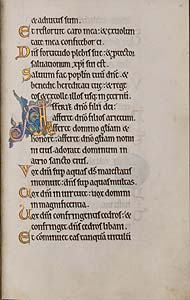 & adiutus sum.
Et refloruit caro mea: & ex uolun
tate mea confitebor ei.
Dñs fortitudo plebis sue: & ptector
saluationum xp̃i sui est.
Saluum fac pop̃lm tuũ dñe: &
benedic hereditati tue: & rege
eos & extolle illos usq; in eternũ.
Afferte dño filii dei:
afferte dño filios arietum.
Afferte domino gl̃iam &
honorẽ: afferte dño gl̃iam nomi
ni eius: adorate dominum in
atrio sancto eius.
Uox dñi sup aquas d̃s maiestatis
intonuit: dñs sup aquas multas.
Uox dñi in uirtute: uox domini
in magnificentia.
Uox dñi confringentis cedros: &
confring& dñs cedros libani.
Et comminu& eas tanquã uitulũ